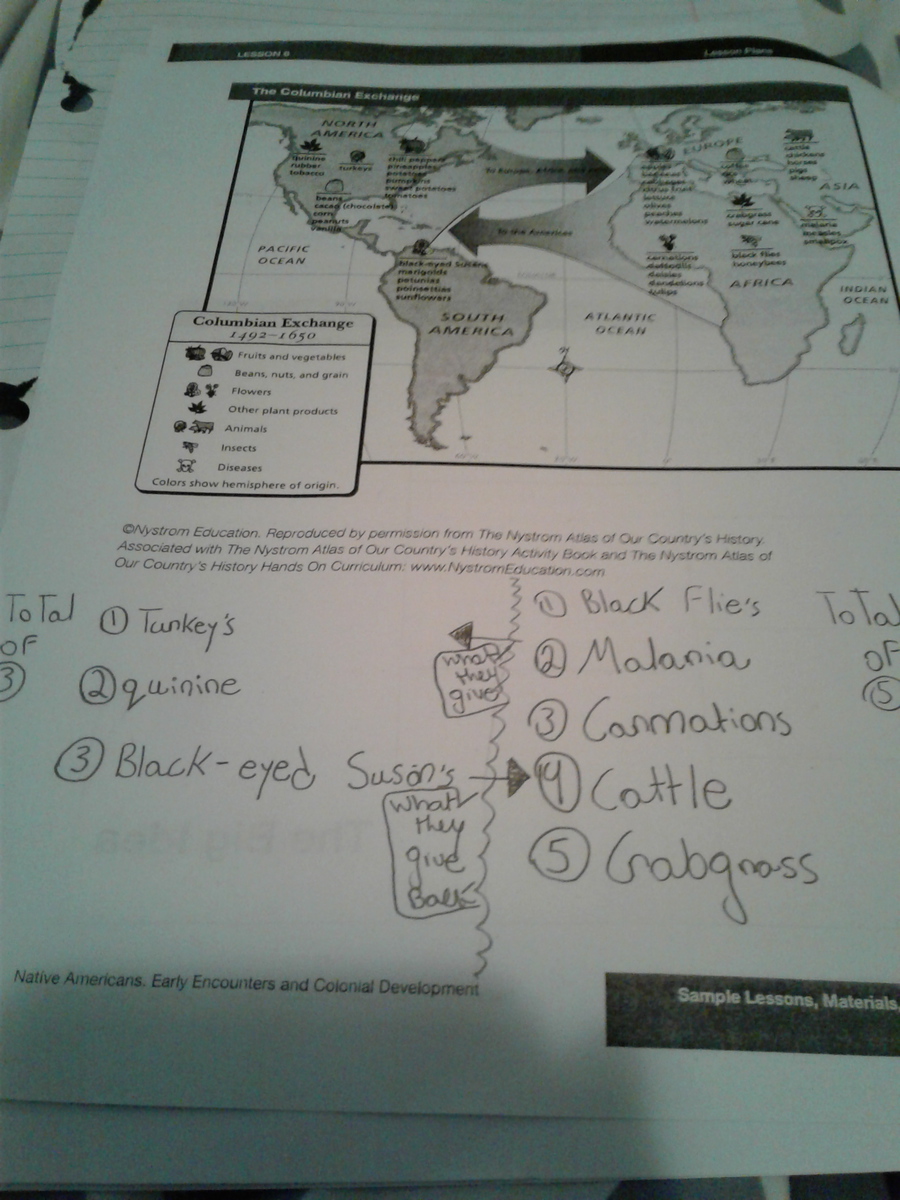 LESSON 6
Lesson Plans
The Columbian Exchange
NORTH
AMERICA
quinine
rubber
tobacco
turkeys
chili peppers
pineapples
potatoes
pumpkins
sweet potatoes
tomatoes
beans
cacao (chocolate)
corn
peanuts
vanilla
To Europe, Africa, and
To the Americas
EUROPE
ASIA
citrus fruit
lettuce
olives
peaches
watermelons
crabgrass
sugar cane
cattle
chickens
horses
pigs
sheep
malaria
measles
smallpox
carnations
daffodils
daisies
dandelions
tulips
black flies
honeybees
AFRICA
PACIFIC
OCEAN
black-eyed Susans
marigolds
petunias
poinsettias
sunflowers
SOUTH
AMERICA
ATLANTIC
OCEAN
INDIAN
OCEAN
Columbian Exchange
1492–1650
Fruits and vegetables
Beans, nuts, and grain
Flowers
Other plant products
Animals
Insects
Diseases
Colors show hemisphere of origin.
©Nystrom Education. Reproduced by permission from The Nystrom Atlas of Our Country's History.
Associated with The Nystrom Atlas of Our Country's History Activity Book and The Nystrom Atlas of
Our Country's History Hands On Curriculum: www.NystromEducation.com
ToTal
OF
3
① Turkey's
② quinine
③ Black-eyed Suson's
what
they
give
what
they
give
Back
① Black Flie's
② Malaria
③ Carnations
④ Cattle
⑤ Crabgrass
ToTal
OF
5
The Big Idea
Native Americans. Early Encounters and Colonial Development
Sample Lessons, Materials,